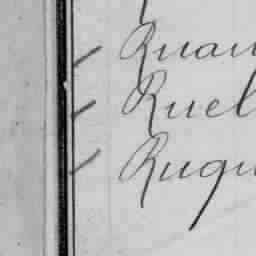 Ruau
Ruel
Rugu